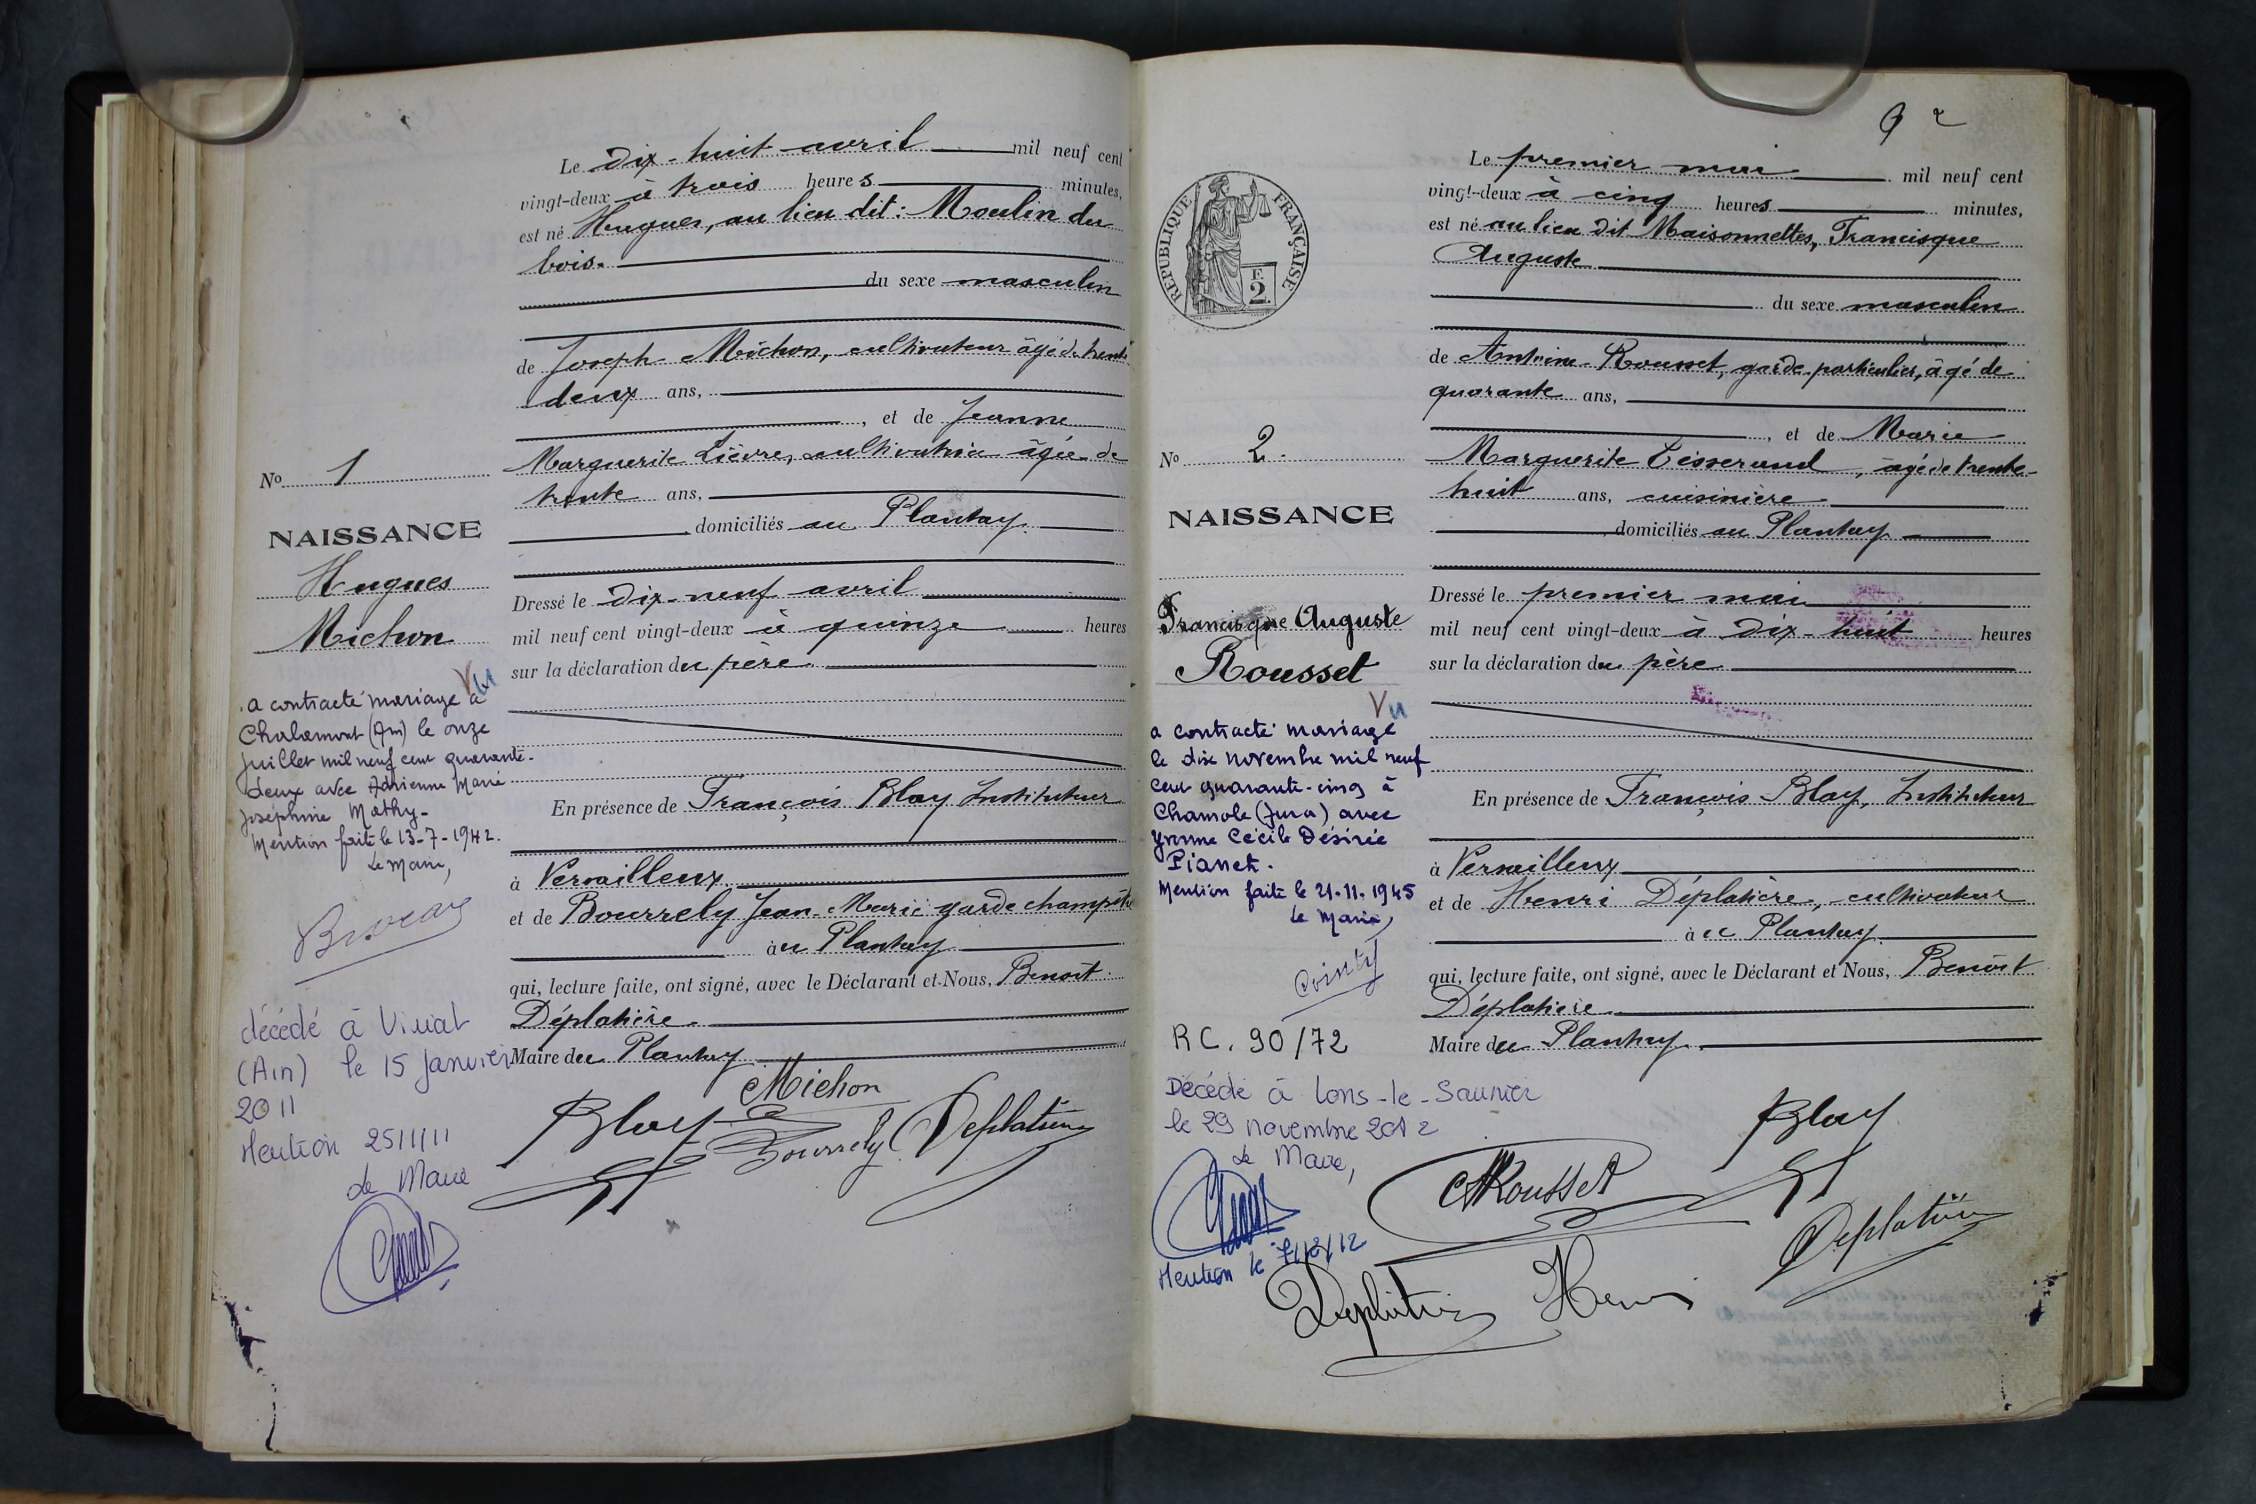 Le dix-huit avril mil neuf cent
vingt-deux à trois heures minutes,
est né Hugues, au lieu dit : Moulin du
bois.
du sexe masculin
de Joseph Michon, cultivateur âgé de trente
deux ans,
, et de Jeanne
Marguerite Lièvre, cultivatrice âgée de
trente ans,
domiciliés au Plantay
Dressé le dix-neuf avril
mil neuf cent vingt-deux à quinze heures
sur la déclaration du père
En présence de François Blay Instituteur
à Versailleux
et de Bourrely Jean-Marie garde champêtre
à u Plantay
qui, lecture faite, ont signé, avec le Déclarant et Nous, Benoit
Déplatière.
Maire du Plantay
Michon
Blay Bourrely Deplatière
No 1
NAISSANCE
Hugues
Michon
Vu
a contracté mariage à
Chalamont (Ain) le onze
juillet mil neuf cent quarante-
deux avec Adrienne Marie
Joséphine Mathy-
Mention faite le 13-7-1942.
Le Maire,
décédé à Viriat
(Ain) le 15 Janvier
2011
Mention 25/1/11
Le Maire
9
Le premier mai mil neuf cent
vingt-deux à cinq heures minutes,
est né au lieu dit Maisonnettes, Francisque
Auguste
du sexe masculin
de Antoine Rousset, garde-particulier, âgé de
quarante ans,
, et de Marie
Marguerite Tisserand, âgé de trente-
huit ans, cuisinière
domiciliés au Plantay
Dressé le premier mai
mil neuf cent vingt-deux à dix-huit heures
sur la déclaration du père
En présence de François Blay, Instituteur
à Versailleux
et de Henri Déplatière, cultivateur
à u Plantay
qui, lecture faite, ont signé, avec le Déclarant et Nous, Benoit
Déplatière
Maire du Plantay.
Blay
Rousset
Deplatière
Deplatière Henri
RÉPUBLIQUE FRANÇAISE
F.
2.
No 2.
NAISSANCE
Francisque Auguste
Rousset
Vu
a contracté mariage
le dix novembre mil neuf
cent quarante-cinq à
Chamole (Jura) avec
Yvonne Cécile Désirée
Pianet.
Mention faite le 21.11.1945
Le Maire,
Cointy
RC. 90/72
Décédé à Lons-le-Saunier
le 29 novembre 2012
Le Maire,
Mention le 7/12/12